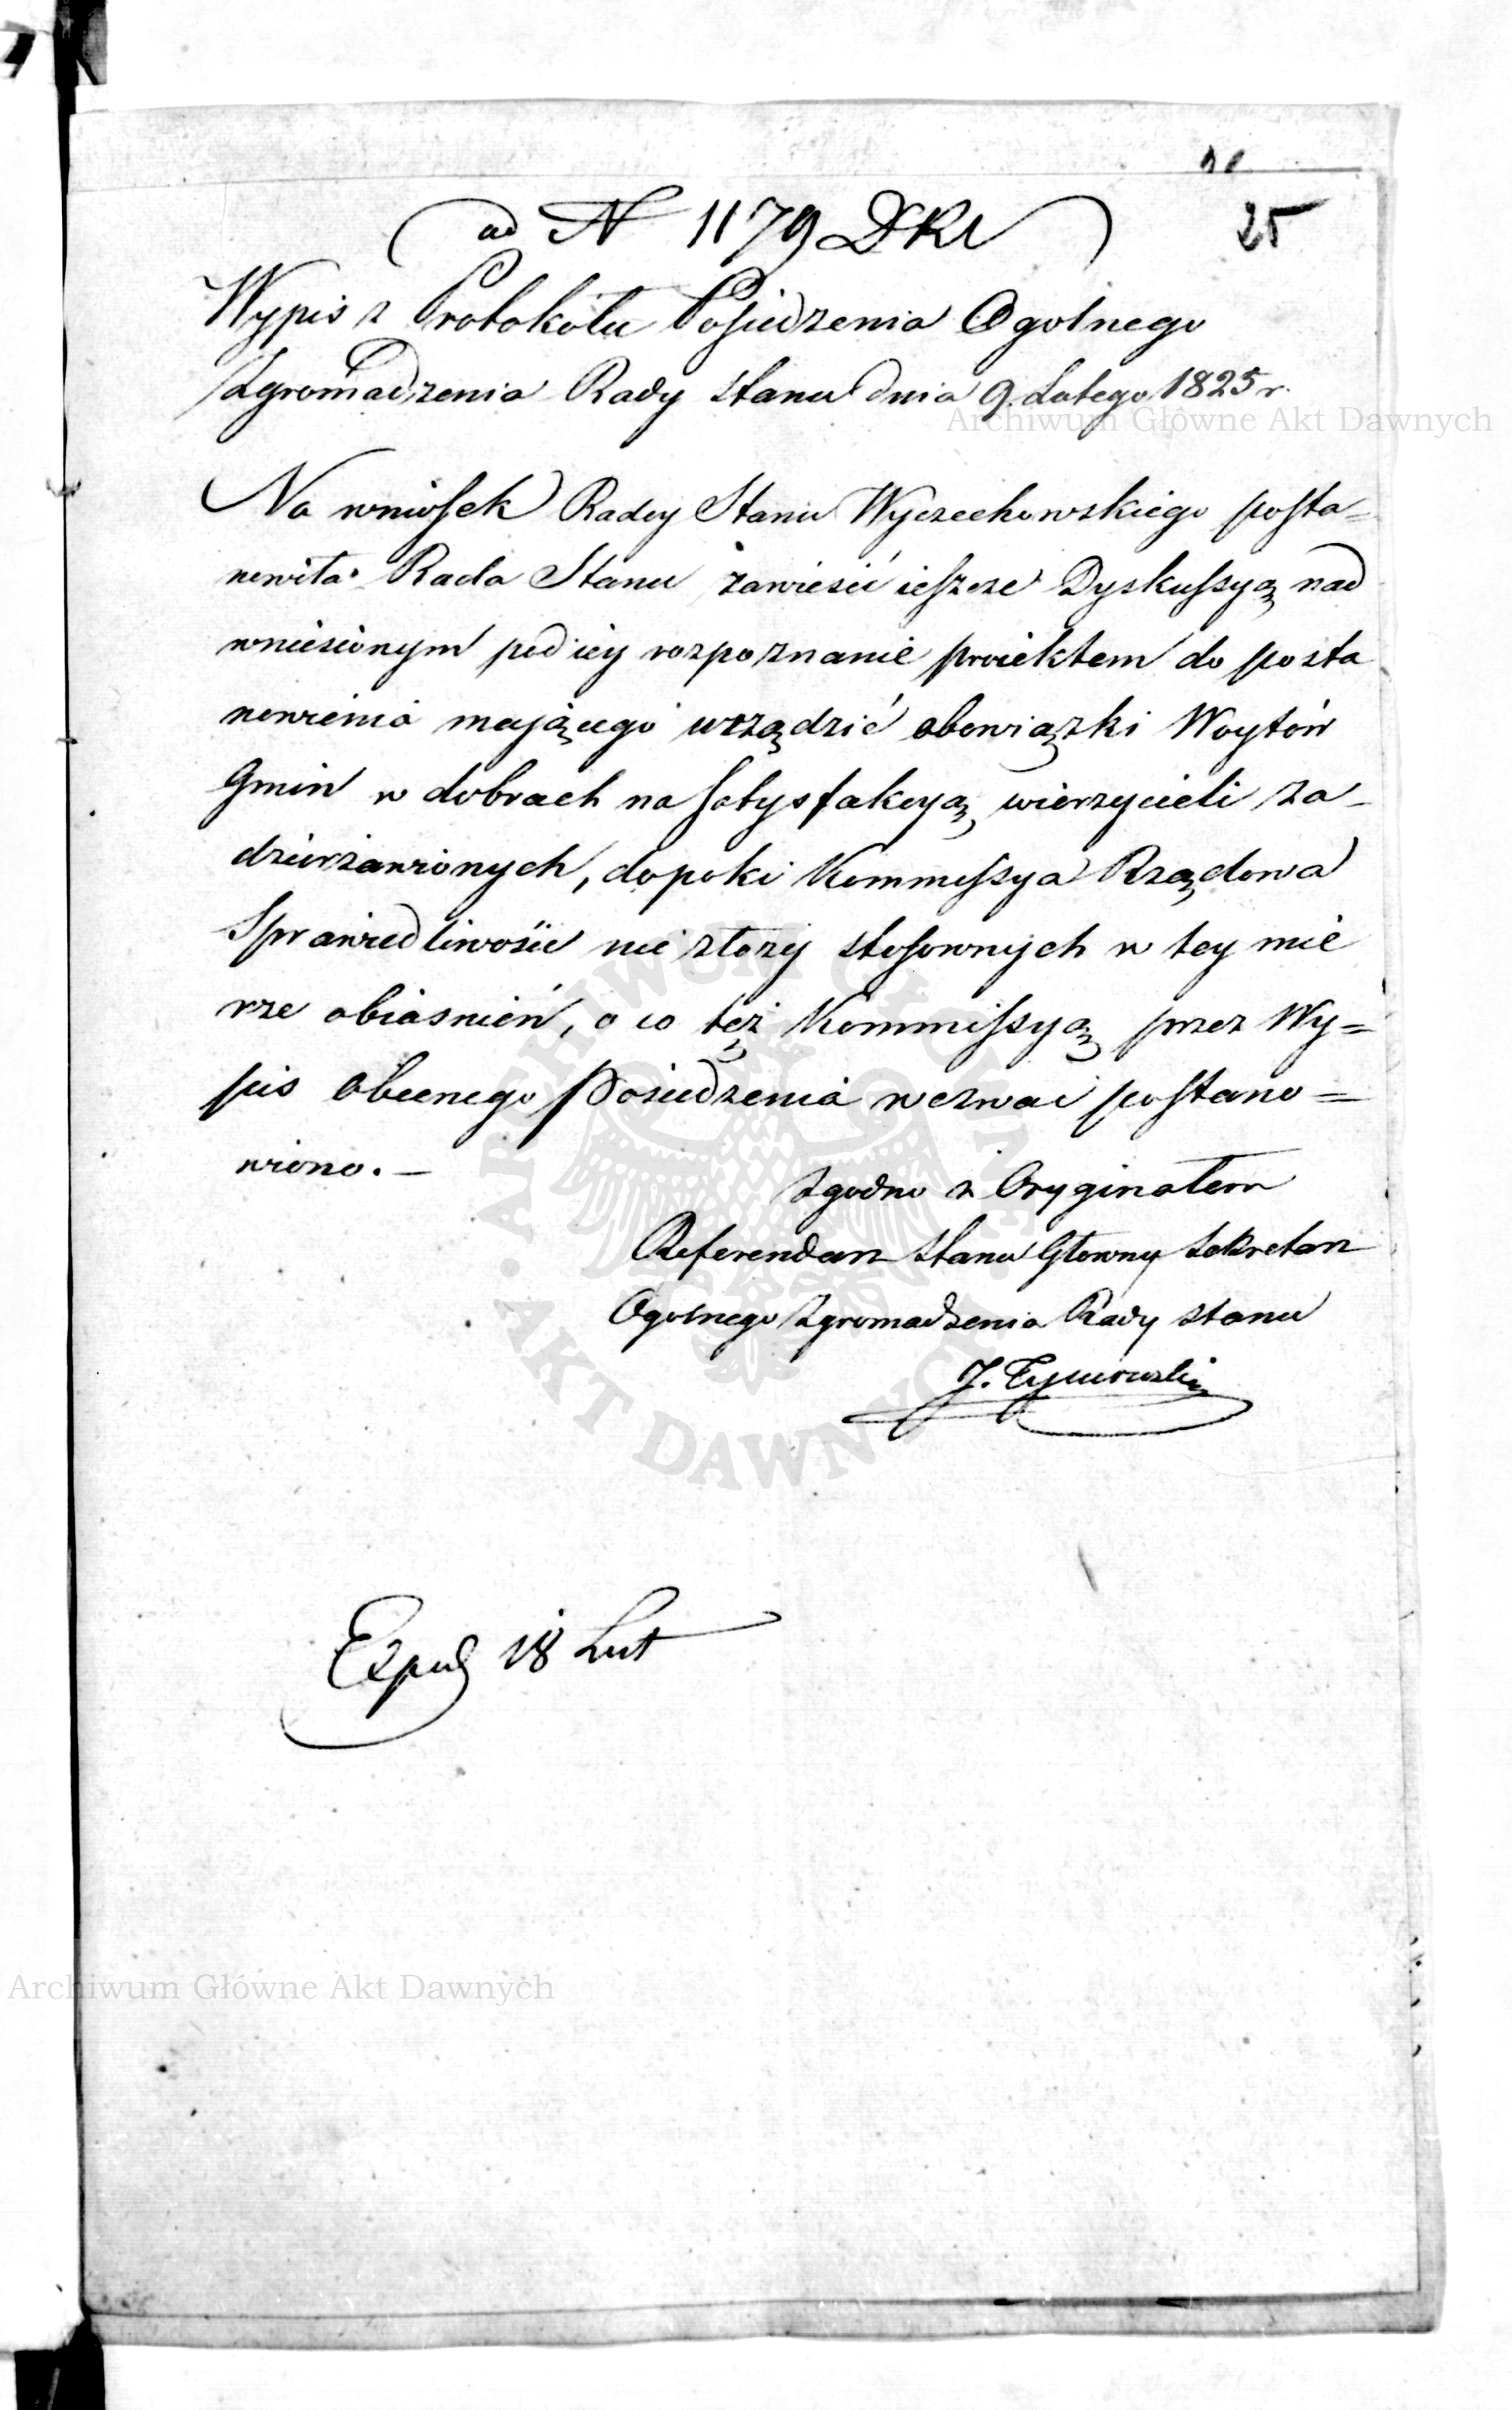 25
ad N 1179 DKl
Wypis z Protokółu Posiedzenia Ogolnego
Zgromadzenia Rady Stanu dnia 9. Lutego 1825 r.
Archiwum Główne Akt Dawnych
Na wniosek Radcy Stanu Wyczechowskiego posta=
nowiła Rada Stanu zawiesić ieszcze Dyskussyą nad
wniesionym pod iey rozpoznanie proiektem do posta
nowienia maiącego urządzić obowiązki Woytów
Gmin w dobrach na satysfakcyą wierzycieli za-
dzierżawionych, dopoki Kommissya Rządowa
Sprawiedliwości nie złoży stosownych w tey mie
rze obiasnień, o co też Kommissyą przez Wy=
pis obecnego Posiedzenia wezwać postano=
wiono.—
Zgodno z Oryginałem
Referendarz Stanu Głowny Sekretarz
Ogolnego Zgromadzenia Rady Stanu
J. Tymowski
ARCHIWUM GŁÓWNE
AKT DAWNYCH
Exped 18 Lut
Archiwum Główne Akt Dawnych